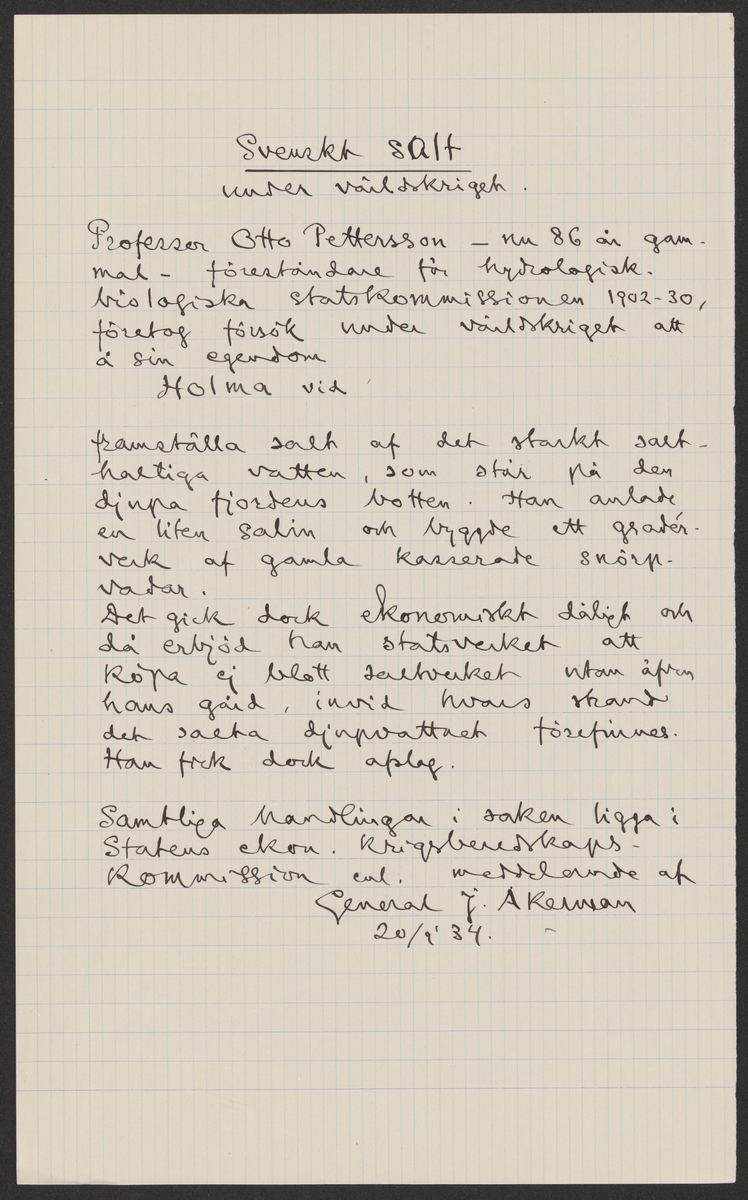 Svenskt salt
under världskriget.
Professor Otto Pettersson – nu 86 år gam-
mal – föreståndare för hydrologisk.
biologiska statskommissionen 1902-30,
företog försök under världskriget att
å sin egendom
Holma vid
framställa salt af det starkt salt-
haltiga vatten, som står på den
djupa fjordens botten. Han anlade
en liten salin och byggde ett gradér-
verk af gamla kasserade snörp-
vadar.
Det gick dock ekonomiskt dåligt och
då erbjöd han statsverket att
köpa ej blott saltverket utan äfven
hans gård, invid hvars strand
det salta djupvattnet förefinnes.
Han fick dock afslag.
Samtliga handlingar i saken ligga i
Statens ekon. Krigsberedskaps-
Kommission enl. meddelande af
General J. Åkerman
20/9 34.